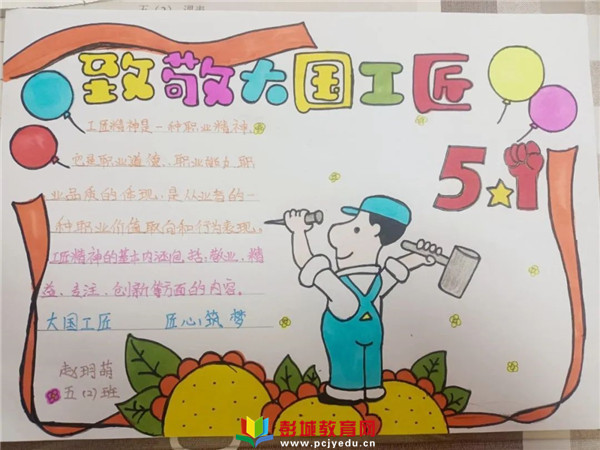 致敬大国工匠
5★1
工匠精神是一种职业精神,
它是职业道德、职业能力、职
业品质的体现,是从业者的一
种职业价值取向和行为表现。
工匠精神的基本内涵包括:敬业、精
益、专注、创新等方面的内容。
大国工匠 匠心筑梦
赵玥萌
五(2)班
彭城教育网
www.pcjyedu.cn